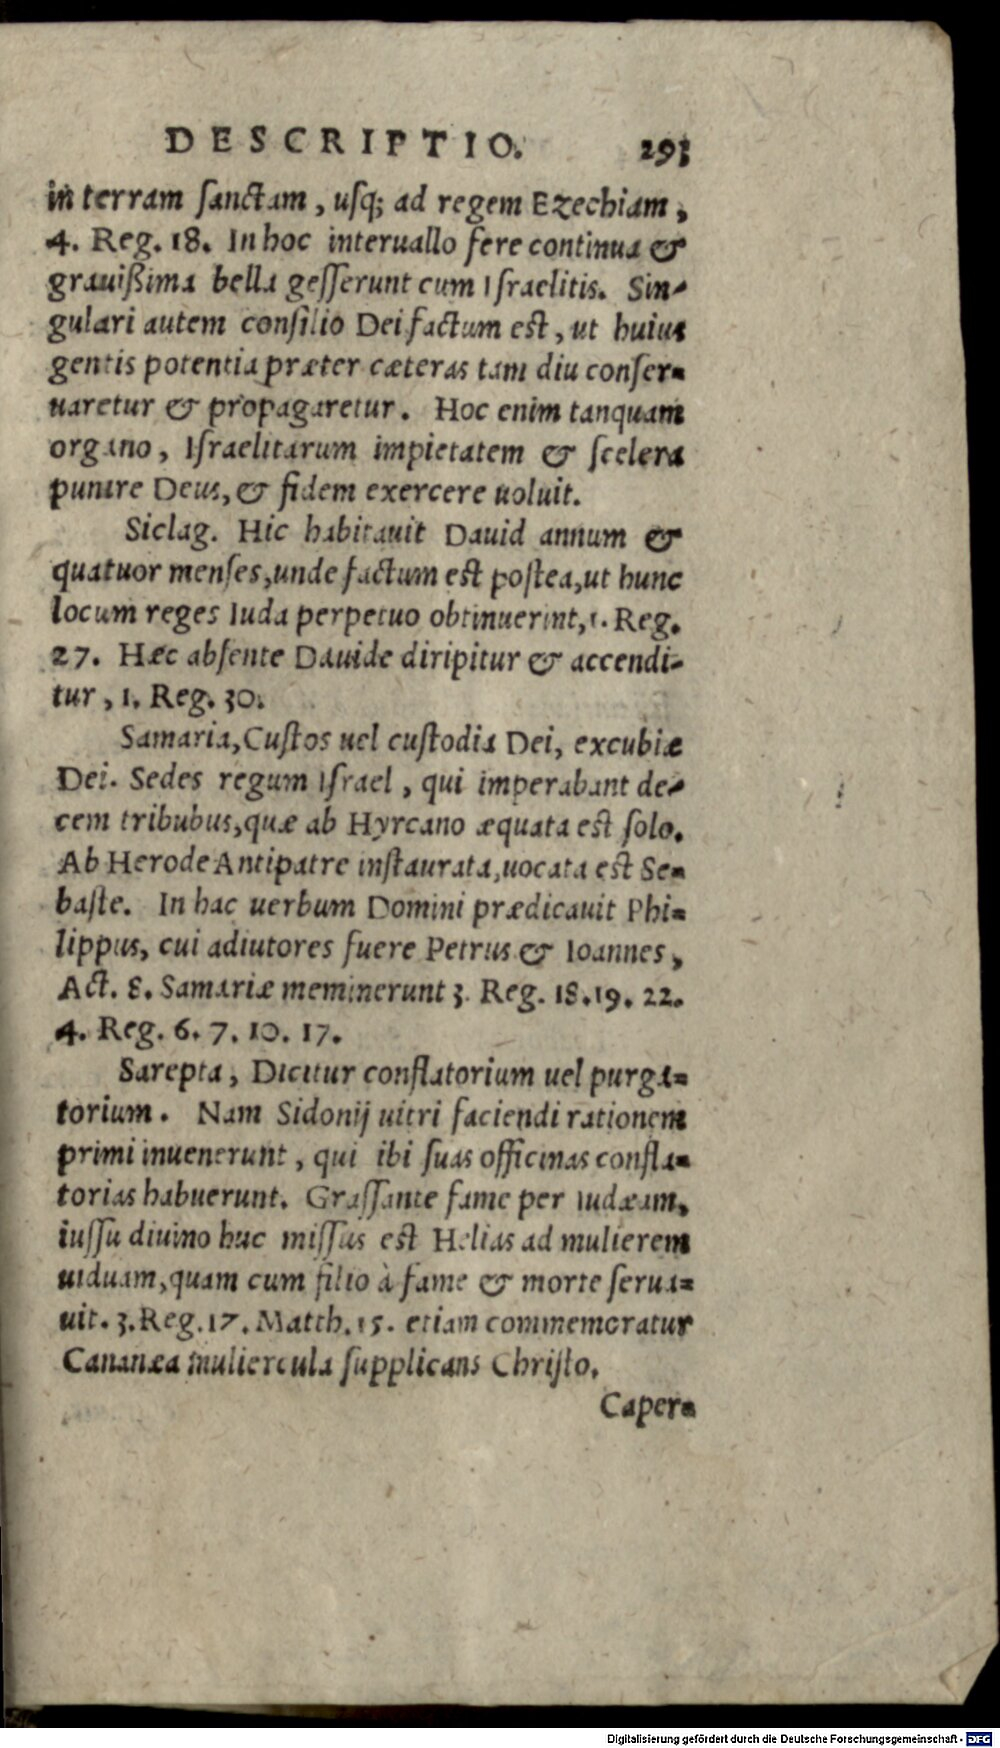 DESCRIPTIO. 293
in terram ſanctam, uſq; ad regem Ezechiam,
4. Reg. 18. In hoc interuallo fere continua &
grauißima bella geſſerunt cum Iſraelitis. Sin-
gulari autem conſilio Dei factum est, ut huius
gentis potentia præter cæteras tam diu conſer-
uaretur & propagaretur. Hoc enim tanquam
organo, Iſraelitarum impietatem & ſcelera
punire Deus, & fidem exercere uoluit.
Siclag. Hic habitauit Dauid annum &
quatuor menſes, unde factum est poſtea, ut hunc
locum reges Iuda perpetuo obtinuerint, 1. Reg.
27. Hæc abſente Dauide diripitur & accendi-
tur, 1. Reg. 30.
Samaria, Cuſtos uel cuſtodia Dei, excubiæ
Dei. Sedes regum Iſrael, qui imperabant de-
cem tribubus, quæ ab Hyrcano æquata est ſolo.
Ab Herode Antipatre inſtaurata, uocata est Se-
baſte. In hac uerbum Domini prædicauit Phi-
lippus, cui adiutores fuere Petrus & Ioannes,
Act. 8. Samariæ meminerunt 3. Reg. 18. 19. 22.
4. Reg. 6. 7. 10. 17.
Sarepta, Dicitur conflatorium uel purga-
torium. Nam Sidonij uitri faciendi rationem
primi inuenerunt, qui ibi ſuas officinas confla-
torias habuerunt. Graſſante fame per Iudæam,
iuſſu diuino huc miſſus est Helias ad mulierem
uiduam, quam cum filio à fame & morte ſerua-
uit. 3. Reg. 17. Matth. 15. etiam commemoratur
Cananæa muliercula ſupplicans Chriſto.
Caper-
Digitalisierung gefördert durch die Deutsche Forschungsgemeinschaft - DFG